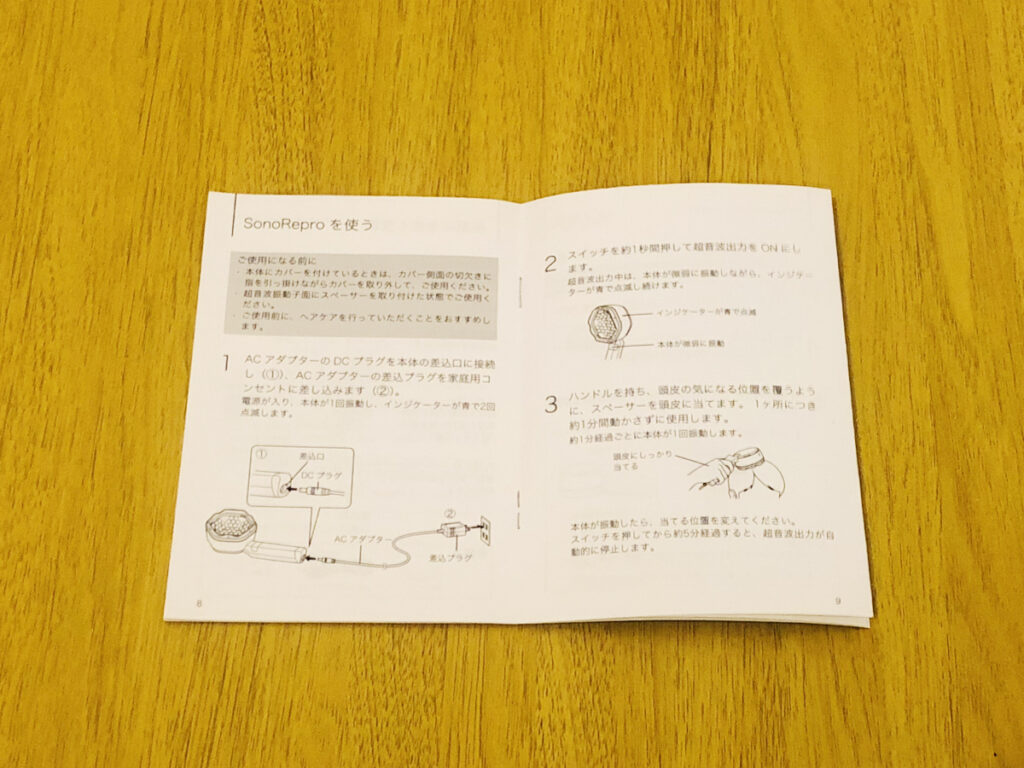 SonoRepro を使う
ご使用になる前に
・本体にカバーを付けているときは、カバー側面の切欠きに
指を引っ掛けながらカバーを取り外して、ご使用ください。
・超音波振動子面にスペーサーを取り付けた状態でご使用く
ださい。
・ご使用前に、ヘアケアを行っていただくことをおすすめし
ます。
1 AC アダプターの DC プラグを本体の差込口に接続
し（①）、AC アダプターの差込プラグを家庭用コ
ンセントに差し込みます（②）。
電源が入り、本体が1回振動し、インジケーターが青で2回
点滅します。
①
差込口
DC プラグ
②
AC アダプター
差込プラグ
8
2 スイッチを約1秒間押して超音波出力を ON にし
ます。
超音波出力中は、本体が微弱に振動しながら、インジケー
ターが青で点滅し続けます。
インジケーターが青で点滅
本体が微弱に振動
3 ハンドルを持ち、頭皮の気になる位置を覆うよう
に、スペーサーを頭皮に当てます。 1ヶ所につき
約1分間動かさずに使用します。
約1分経過ごとに本体が1回振動します。
頭皮にしっかり
当てる
本体が振動したら、当てる位置を変えてください。
スイッチを押してから約5分経過すると、超音波出力が自
動的に停止します。
9